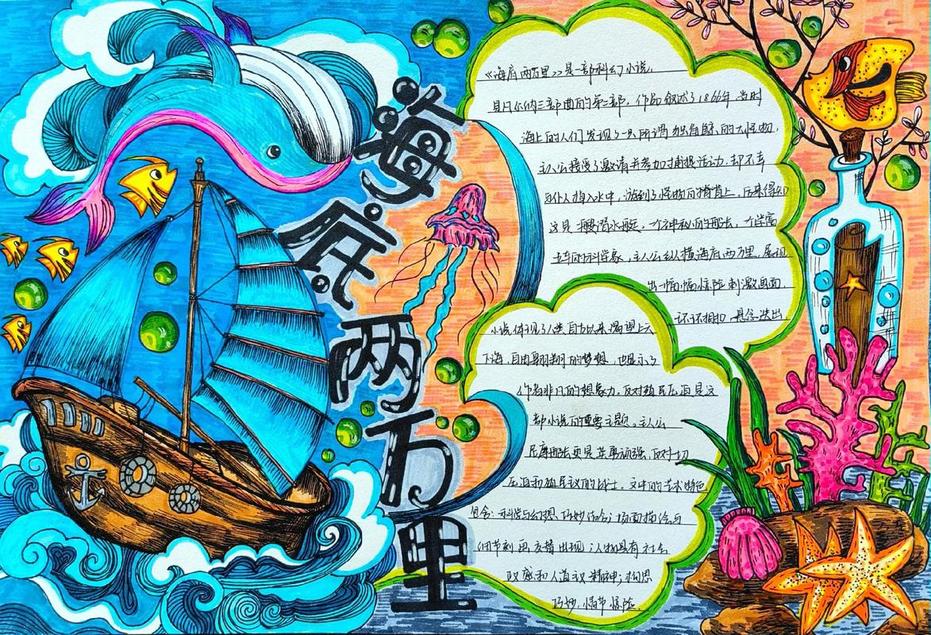 海底两万里
《海底两万里》是一部科幻小说,
是凡尔纳三部曲的第三部,作品叙述了1866年 当时
海上的人们发现了 所谓独角鲸的大怪物,
主人公接受了邀请并参加对捕捉活动,却不幸
与仆人掉入水中,游到了怪物的脊背上,后来得知
这是一艘潜水艇,一个神秘的船长,一个
的科学家,主人公纵横海底两万里,展现
出一幅幅惊险刺激画面,
一环环相扣 悬念迭出
小说体现了人类自古以来渴望上天
下海,自由翱翔的梦想,也显示了
作者非凡的想象力,反对殖民压迫是这
部小说的重要主题,主人公
尼摩船长更是英勇顽强,反对
压迫和殖民主义的战士,文中的艺术特色
包含:科学与幻想,巧妙结合;场面描绘与
细节刻画交替出现;人物具有社会
感和人道主义精神;构思
巧妙,情节惊险